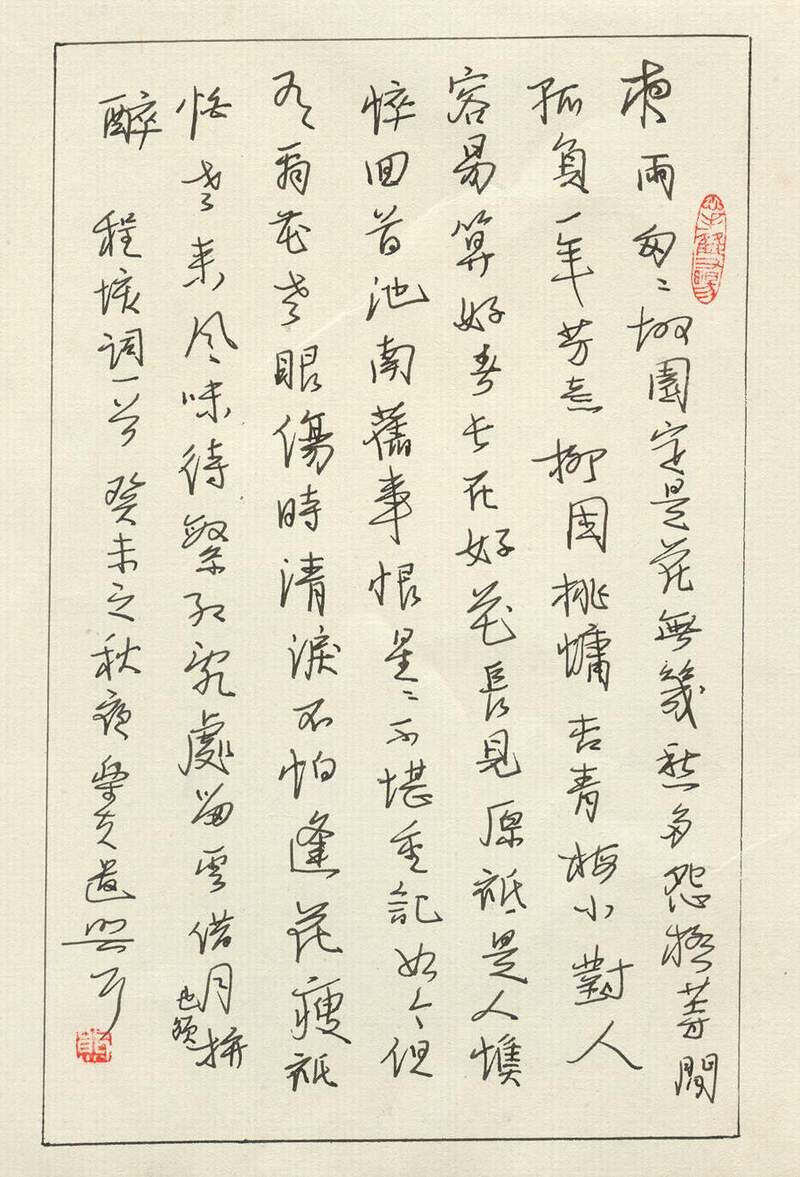 夜雨匆〻故園定是花無幾愁多怨極等閒
孤負一年芳意柳困桃慵杏青梅小對人
容易算好春长在好花長見原祗是人憔
悴回首池南舊事恨星〻不堪重記如今但
有看花老眼傷時清淚不怕逢花瘦祗
怕老来风味待繁红亂處留雲借月也須拚
醉 程垓词一首 癸未之秋夜 遣興